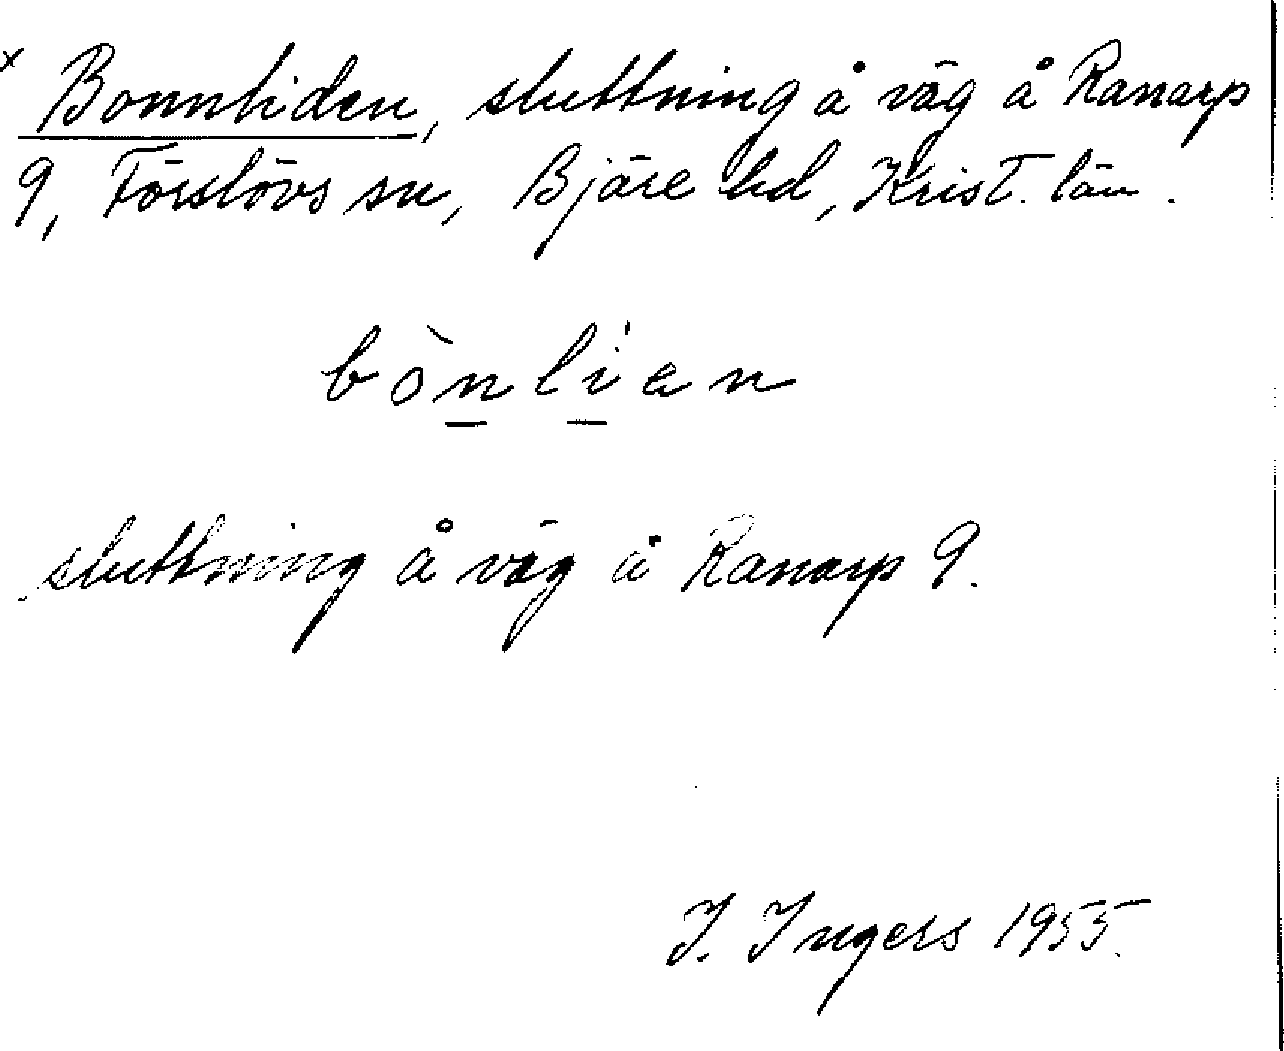 x Bonnliden, sluttning å väg å Ranarp
9, Förslövs sn, Bjäre hd, Krist. län.
bònlian
sluttning å väg å Ranarp 9.
I. Ingers 1955.